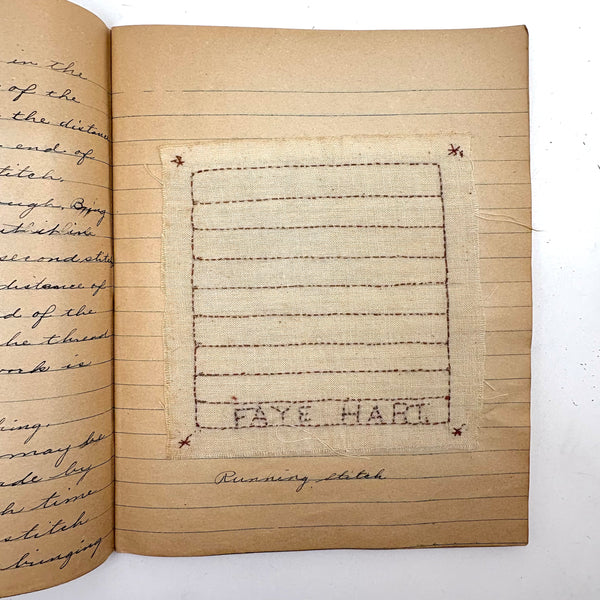 in the
of the
the distance
end of
stitch.
ough. Bring
it it in
second stitch
distance of
d of the
he thread
work is
hing.
may be
ade by
h time
stitch
bringing
FAYE HART.
Running stitch